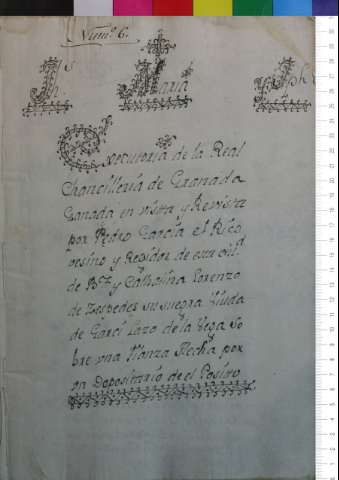 Num.º 6.
Jhs Maria Jph
Executoria de la Real
Chancilleria de Granada
Ganada en vista y Revista
por Pedro Garcia el Rico
vesino y Regidor de esta
de Bz.ᵃ y Catholina Lorenzo
de Zespedes su suegra Viuda
de Garci Lazo de la Vega so
bre una fianza Hecha por
un Depositario de el Posito